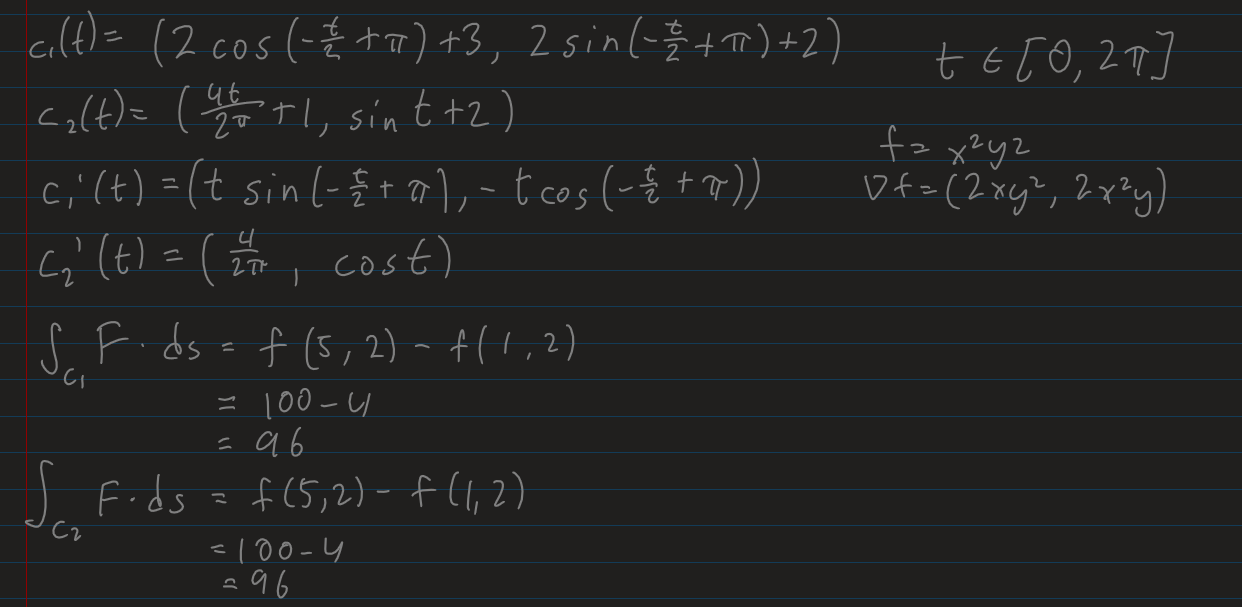 c₁(t) = (2 cos(-t/2 + π) + 3, 2 sin(-t/2 + π) + 2)
t ∈ [0, 2π]
c₂(t) = (4t/2π + 1, sin t + 2)
f = x²y²
c₁'(t) = (t sin(-t/2 + π), - t cos(-t/2 + π))
∇f = (2xy², 2x²y)
c₂'(t) = (4/2π, cos t)
∫_C₁ F · ds = f(5, 2) - f(1, 2)
= 100 - 4
= 96
∫_C₂ F · ds = f(5, 2) - f(1, 2)
= 100 - 4
= 96